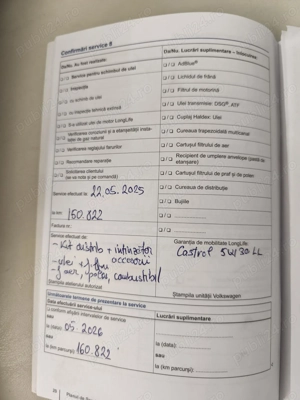 Confirmări service II
Da/Nu, au fost realizate:
Da/Nu. Lucrări suplimentare – întocmire:
Service pentru schimbul de ulei
Inspecţie
cu schimb de ulei
cu inspecţie tehnică extinsă
S-a utilizat ulei de motor LongLife
Verificarea consumului şi a etanşeităţii insta-
laţiei de gaz natural
Verificarea reglajului farurilor
Recomandare reparaţie
Solicitarea clientului
(se va nota şi pe comandă)
AdBlue®
Lichidul de frână
Filtrul de motorină
Ulei transmisie: DSG®, ATF
Cuplaj Haldex: Ulei
Cureaua trapezoidală multicanal
Cartuşul filtrului de aer
Recipient de umplere anvelope (pană de
etanşare)
Cartuşul filtrului de praf şi de polen
Cureaua de distribuţie
Bujiile
Service efectuat la: 22.05.2025
la km: 150.822
Factura nr.:
Service efectuat de:
- Kit curele + întinzător
accesorii
- ulei + f. ulei
- f. aer, polen, combustibil
Ştampila atelierului autorizat
Garanţia de mobilitate LongLife:
Castrol 5W30 LL
Ştampila unităţii Volkswagen
Următoarele termene de prezentare la service
Data efectuării service-ului
Lucrări suplimentare
La (data): 05.2026
sau
la (km parcurşi): 160.822
la (data):
sau
la (km parcurşi):
20